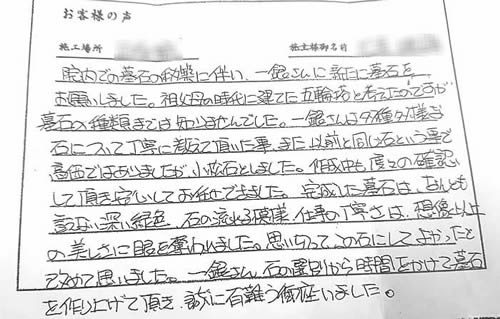 お客様の声
施工場所 施主様御名前
院内での墓石の移築に伴い、一銘さんに新たに墓石を
お願いしました。祖父母の時代に建てた五輪塔と考えたのですが
墓石の種類までは知りませんでした。一銘さんは多種多様な
石について丁寧に教えて頂いた事、また以前と同じ石という事で
高価ではありましたが、小松石としました。作成中も度々の確認い
して頂き安心してお任せできました。完成した墓石は、なんとも
言えない深い緑色、石の流れる模様、仕事の丁寧さは、想像以上
の美しさに眼を奪われました。思いきってこの石にしてよかったと
改めて思いました。一銘さん、石の選別から時間をかけて墓石
を作り上げて頂き、誠に有難う御座いました。